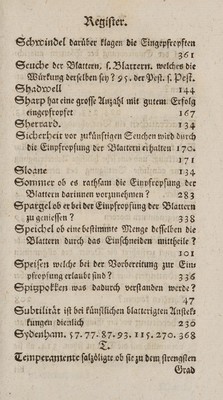 Register.
Schwindel darüber klagen die Eingepfropften
361
Seuche der Blattern, s. Blattern. welchen die
Würkung derselben sey? 95. der Pest. s. Pest.
Shadwell 144
Sharp hat eine grosse Anzahl mit gutem Erfolg
eingepfropfet 167
Sherard. 134
Sicherheit vor zukünftigen Seuchen wird durch
die Einpfropfung der Blattern erhalten 170.
171
Sloane 134
Sommer ob es rathsam die Einpfropfung der
Blattern darinnen vorzunehmen? 283
Spargel ob er bei der Einpfropfung der Blattern
zu geniessen? 338
Speichel ob eine bestimmte Menge desselben die
Blattern durch das Einschneiden mittheile?
101
Speisen welche bei der Vorbereitung zur Ein-
pfropfung erlaubt sind? 336
Spitzpokken was dadurch verstanden werde?
47
Subtilität ist bei künstlichen blatterigten Anstek-
kungen dienlich 230
Sydenham. 57. 77. 87. 93. 115. 270. 368
T.
Temperamente salzöligte ob sie zu dem strengsten
Grad